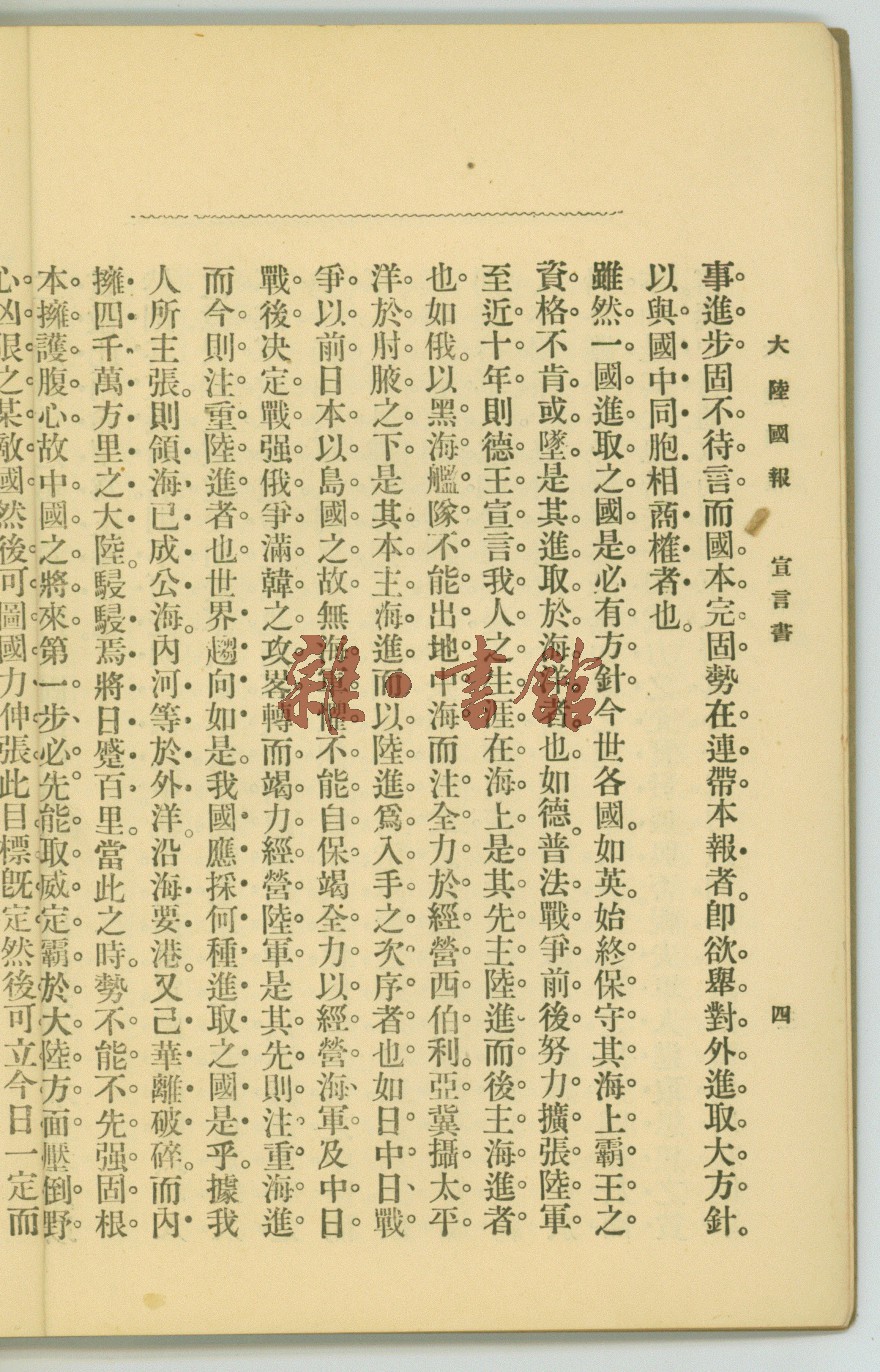 大陸國報　宣言書　四
事進步固不待言而國本完固勢在連帶本報者卽欲舉對外進取大方針。
以與國中同胞相商榷者也。
雖然一國進取之國是必有方針今世各國。如英。始終保守其海上霸王之
資格不肯或墜是其進取於海洋者。也如德。普法戰爭前後努力擴張陸軍
至近十年則德王宣言我人之生涯在海上是其先主陸進而後主海進者
也如俄。以黑海艦隊不能出地中海而注全力於經營西伯利。亞冀攝太平
洋於肘腋之下是其本主海進而以陸進爲入手之次序者也如日中日、戰
爭以前日本以島國之故無海軍懼不能自保竭全力以經營海軍及中日
戰後決定戰强俄爭滿韓之攻畧轉而竭力經營陸軍是其先則注重海進
而今則注重陸進者也世界趨向如是。我國應採何種進取之國是乎。據我
人所主張。則領海已成公海。內河等於外洋。沿海要港。又已華離破碎。而內
擁四千萬方里之大陸。駸駸焉將日蹙百里。當此之時。勢不能不先强固根
本擁護腹心故中國之將來第一步必先能取威定霸於大陸方面壓倒野
心凶狠之某敵國然後可圖國力伸張此目標旣定然後可立今日一定而
雜·書館